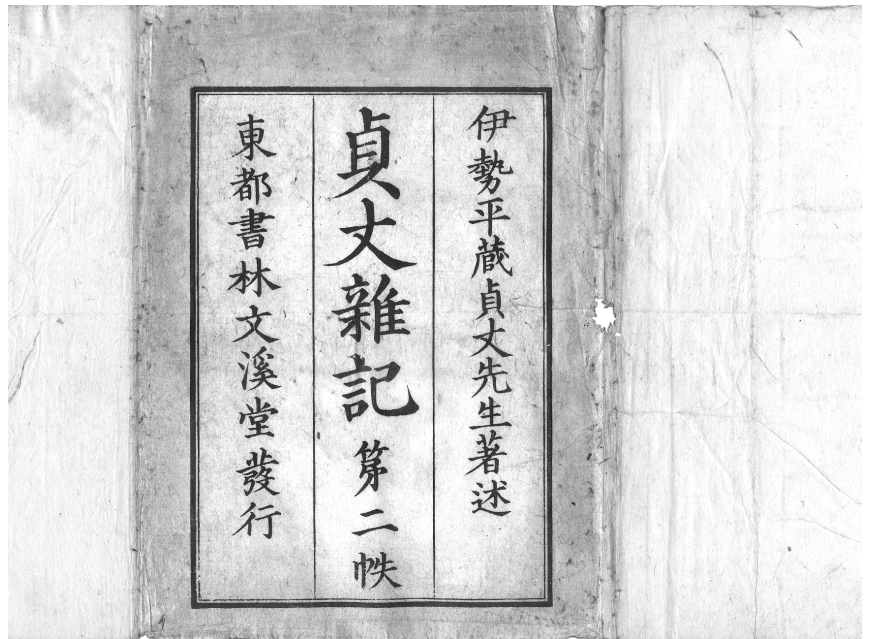 伊勢平蔵貞丈先生著述
貞丈雜記 第二帙
東都書林文溪堂發行